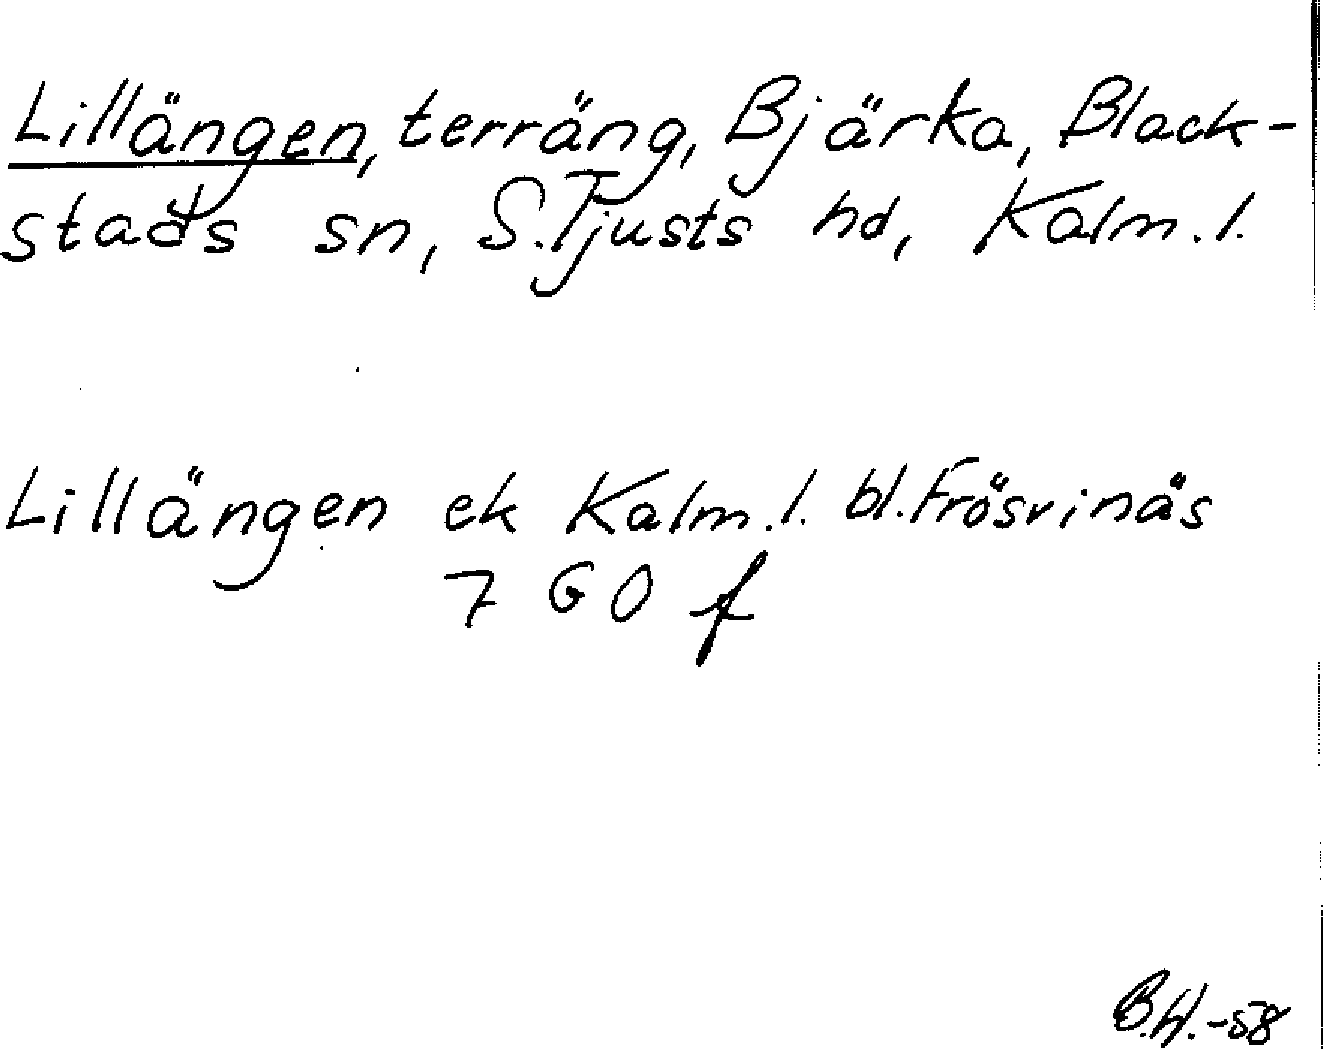 Lillängen, terräng, Bjärka, Black-
stads sn, S. Tjusts hd, Kalm. l.
Lillängen ek Kalm. l. bl. Frösvinäs
7 G O f
B.H.-58